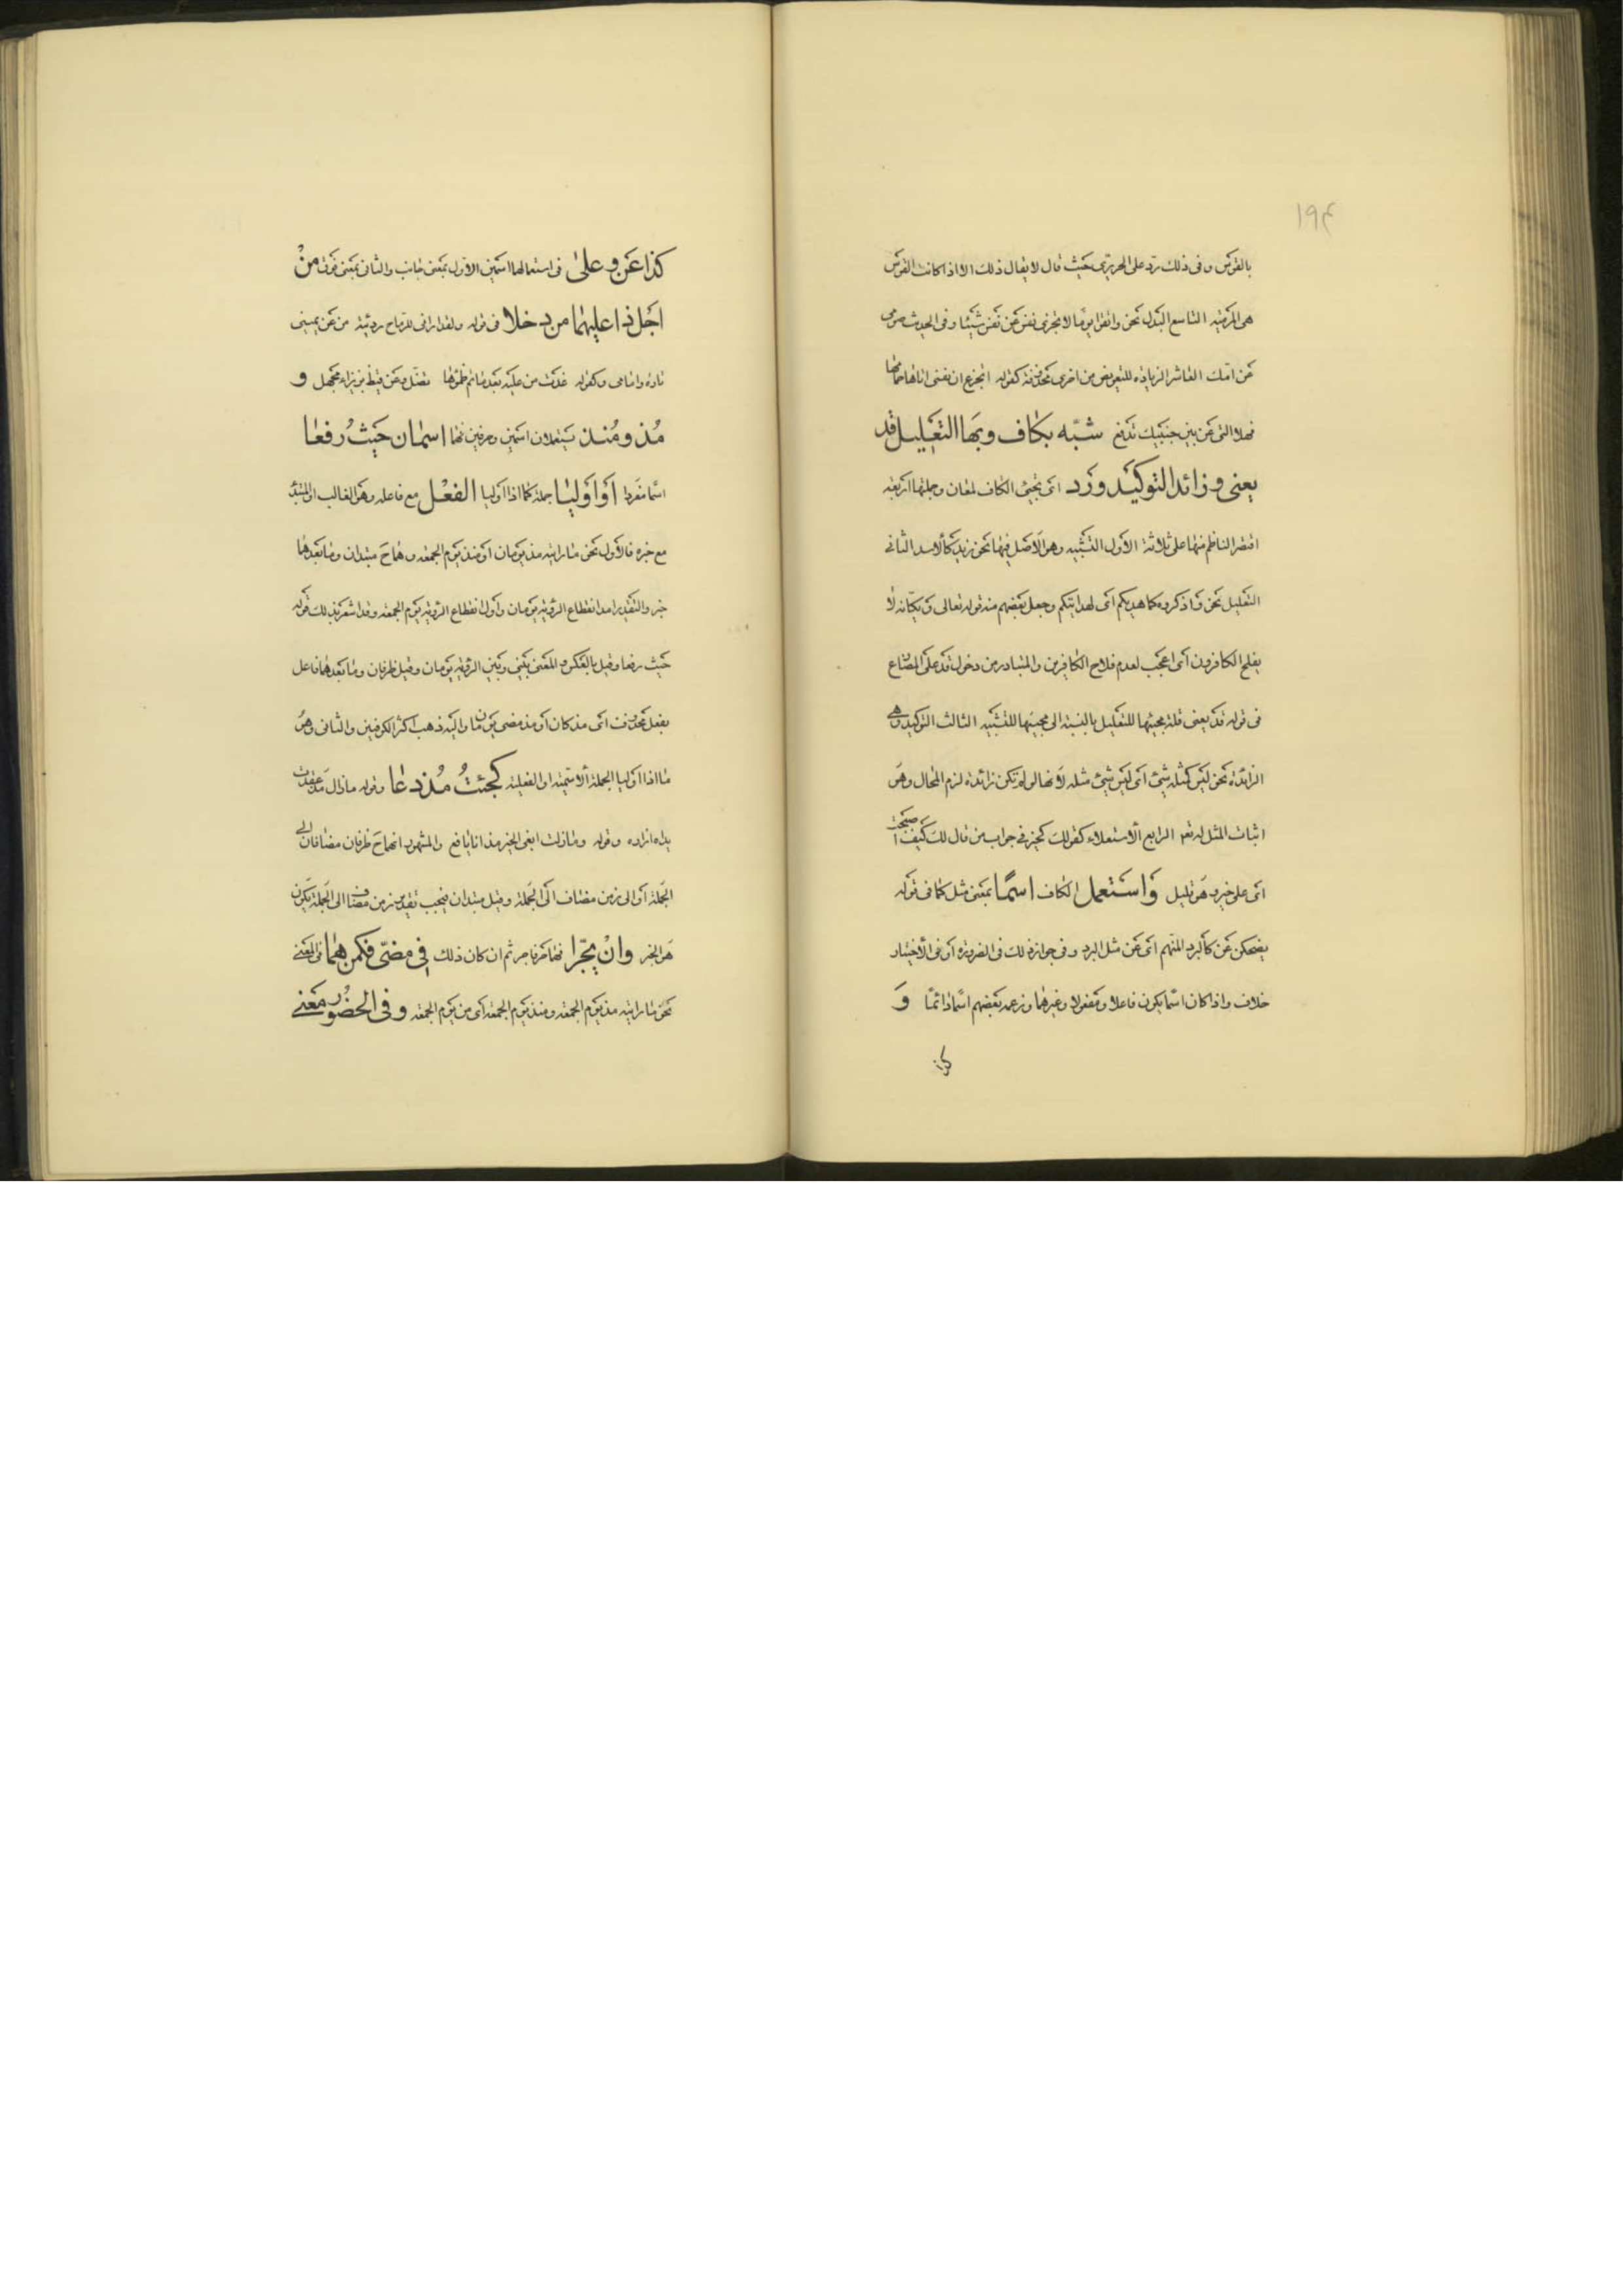 ١٩٤
بالقوس وفى ذلك رد على الحريرى حيث قال لا يقال ذلك الا اذا كانت القوس
هى المرمية التاسع البدل نحو واتقوا يوما لا تجزى نفس عن نفس شيئا وفى الحديث صومى
عن امك العاشر الزيادة للتعويض من اخرى محذوفة كقوله اتجزع ان نفس اتاها حمامها
فهلا التى عن بين جنبيك تدفع شبّه بكاف وبها التعليل قد
يعنى وزائدا لتوكيد ورد اى تجيئ الكاف لمعان وجملتها اربعة
اقتصر الناظم منها على ثلاثة الاول التشبيه وهو الاصل فيها نحو زيد كالاسد الثانى
التعليل نحو واذكروه كما هديكم اى لهدايتكم وجعل بعضهم منه قوله تعالى ويكانه لا
يفلح الكافرون اى اعجب لعدم فلاح الكافرين والمتبادر من دخول قد على المضارع
فى قوله قد يعنى قلة مجيئها للتعليل بالنسبة الى مجيئها للتشبيه الثالث التوكيد وهى
الزائدة نحو ليس كمثله شيئ اى ليس شيئ مثله لانها لو لم تكن زائدة لزم المحال وهو
اثبات المثل له تعم الرابع الاستعلاء كقولك كخير فى جواب من قال لك كيف اصبحت
اى على خير وهو قليل وَاستعمل الكاف اسمًا بمعنى مثل كما فى قوله
يضحكن عن كالبرد المنهم اى عن مثل البرد وفى جواز ذلك فى الضرورة او فى الاختيار
خلاف واذا كان اسما يكون فاعلا ومفعولا وغيرهما وزعم بعضهم اسما دائما وَ
كذا
كذا عن وعلى فى استعالهما اسمين الاول بمعنى جانب والثانى بمعنى فوق منْ
اجل ذا عليهما من دخلا فى قوله ولقد ارانى للرماح دريئة من عن يمينى
تارة وامامى وكقوله غدت من عليه بعد ما تم ظمؤها تصل وعن قيظ بزيزاء مجهل و
مُذ ومُنذ يستعملان اسمين وحرفين فهما اسمان حيثُ رفعا
اسما مفردا اَوْ اُولِيا جملة كما اذا اوليا الفعْل مع فاعله وهو الغالب او المبتدا
مع خبره فالاول نحو ما رايته مذ يومان او منذ يوم الجمعه وهما ح مبتدان وما بعدهما
خبر والتقدير امد انقطاع الروية يومان واول انقطاع الروية يوم الجمعه وقد اشعر بذلك قوله
حيث رفعا وقيل بالعكس والمعنى بينى وبين الروية يومان وقيل ظرفان وما بعدهما فاعل
بفعل محذوف اى مذ كان او مذ مضى يومان واليه ذهب اكثر الكوفيين والثانى وهو
ما اذا اوليا الجملة الاسمية او الفعلية كجئتُ مُذ دعا وقوله ما زال مذ عقدت
يداه ازاره وقوله وما زلت ابغى الخير مذ انا يافع والمشهور انهما ح ظرفان مضافان الى
الجملة او الى زمن مضاف الى الجملة وقيل مبتدان فيجب تقدير زمن مضاف الى الجملة يكون
هو الخبر وانْ يجرّا فهما حرفا جر ثم ان كان ذلك فى مضىّ فكمن هما فى المعنى
نحو ما رايته مذ يوم الجمعه ومنذ يوم الجمعه اى من يوم الجمعه وفى الحضُور معنى